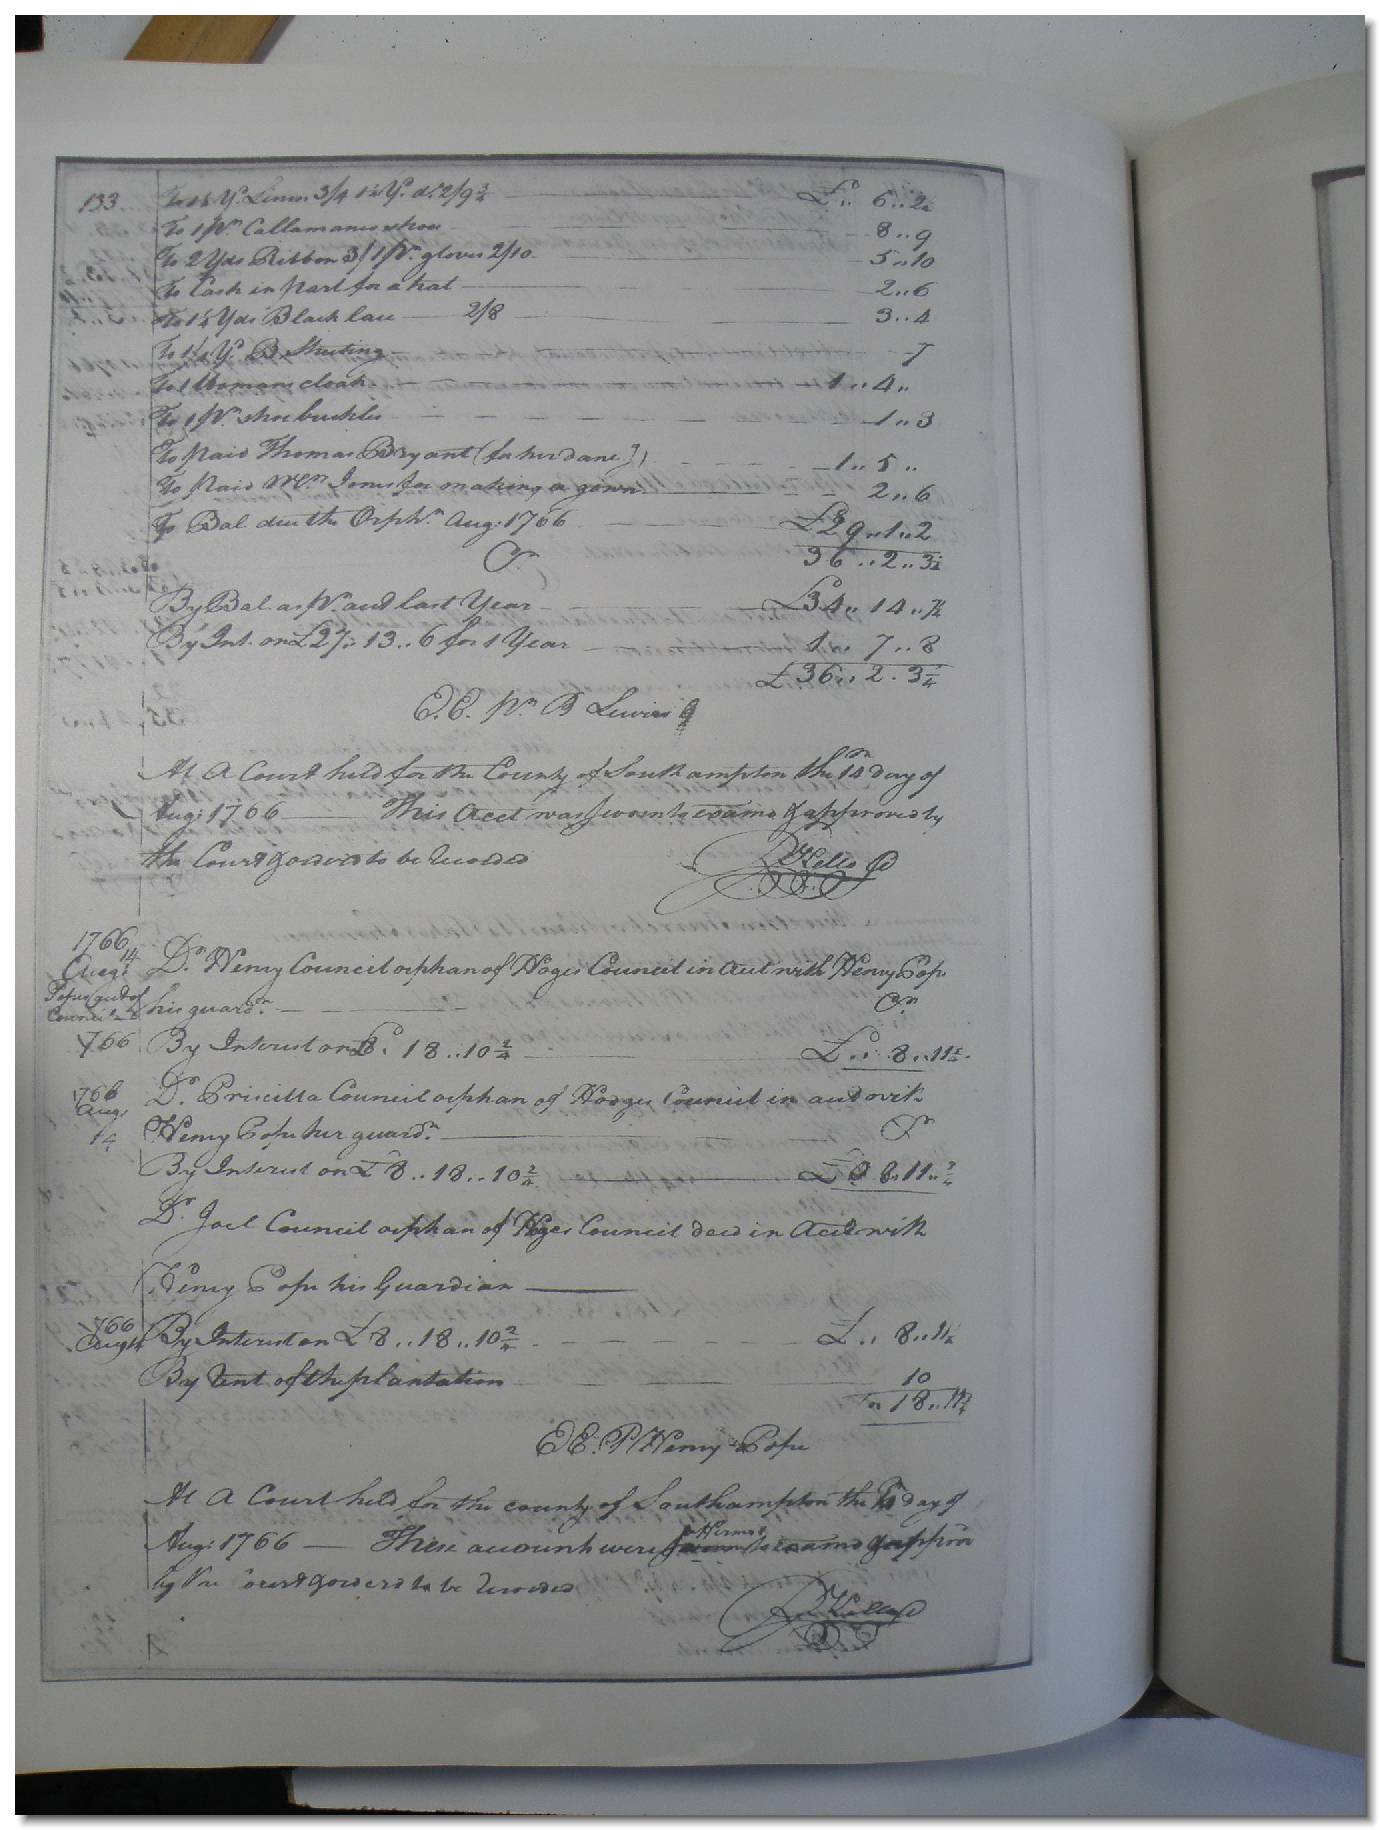 133 To 1½ Yd. Linen 3/4 1½ Yd. do. 2/9¾ £ 6..2½
To 1 pr. Callamanco shoes 8..9
To 2 Yds Ribbon 3/ 1 pr. gloves 2/10 5..10
To Cash in part for a hat 2..6
To 1¼ Yds Black lace 2/8 3..4
To 1¼ Yd. B. Sheeting 7
To 1 Womans cloak 1..4..
To 1 pr. shoe buckles 1..3
To paid Thomas Bryant (for her dance]) 1..5..
To paid Wm. Jones for making a gown 2..6
To Bal. due the Orph.n Aug: 1766 £29..1..2
Cr 36..2..3¼
By Bal. as pr. acct last Year £34..14..7¼
By Int. on £27..13..6 for 1 Year 1..7..8
£36..2.3¼
E.E. pr. B Lewis
At A Court held for the County of Southampton the 14 day of
Aug: 1766 This Acct was sworn to examd & approved by
the Court & orderd to be Recorded
R Kello
1766
Augt 14 Dr. Henry Council orphan of Hoges Council in acct with Henry Pope
Popes acct of
Council his guard.n Cr
1766 By Interest on £8.18..10¾ £..8..11¼
1766
Aug: Dr. Priscilla Council orphan of Hodges Council in acct with
14 Henry Pope her guard.n Cr
By Interest on £8..18..10¾ £0 8..11¼
Dr. Joel Council orphan of Hoges Council decd in Acct with
Henry Pope his Guardian
1766
Augt 14 By Interest on £8..18..10¾ £..8..11¼
By Rent of the plantation 10
18..11¼
EE. P Henry Pope
At A Court held for the county of Southampton the 14 day of
Aug: 1766 These accounts were sworn to examd & apprd
by the Court & orderd to be Recorded
R Kello